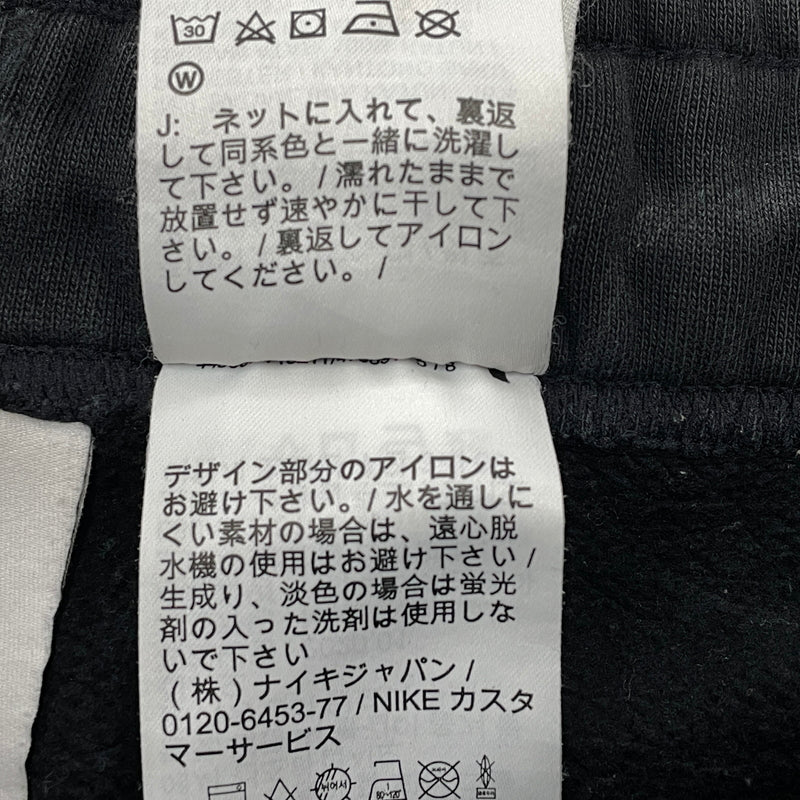 30
W
J: ネットに入れて、裏返
して同系色と一緒に洗濯し
て下さい。 / 濡れたままで
放置せず速やかに干して下
さい。 / 裏返してアイロン
してください。 /
デザイン部分のアイロンは
お避け下さい。 / 水を通しに
くい素材の場合は、遠心脱
水機の使用はお避け下さい /
生成り、淡色の場合は蛍光
剤の入った洗剤は使用しな
いで下さい
(株) ナイキジャパン /
0120-6453-77 / NIKE カスタ
マーサービス
80~120